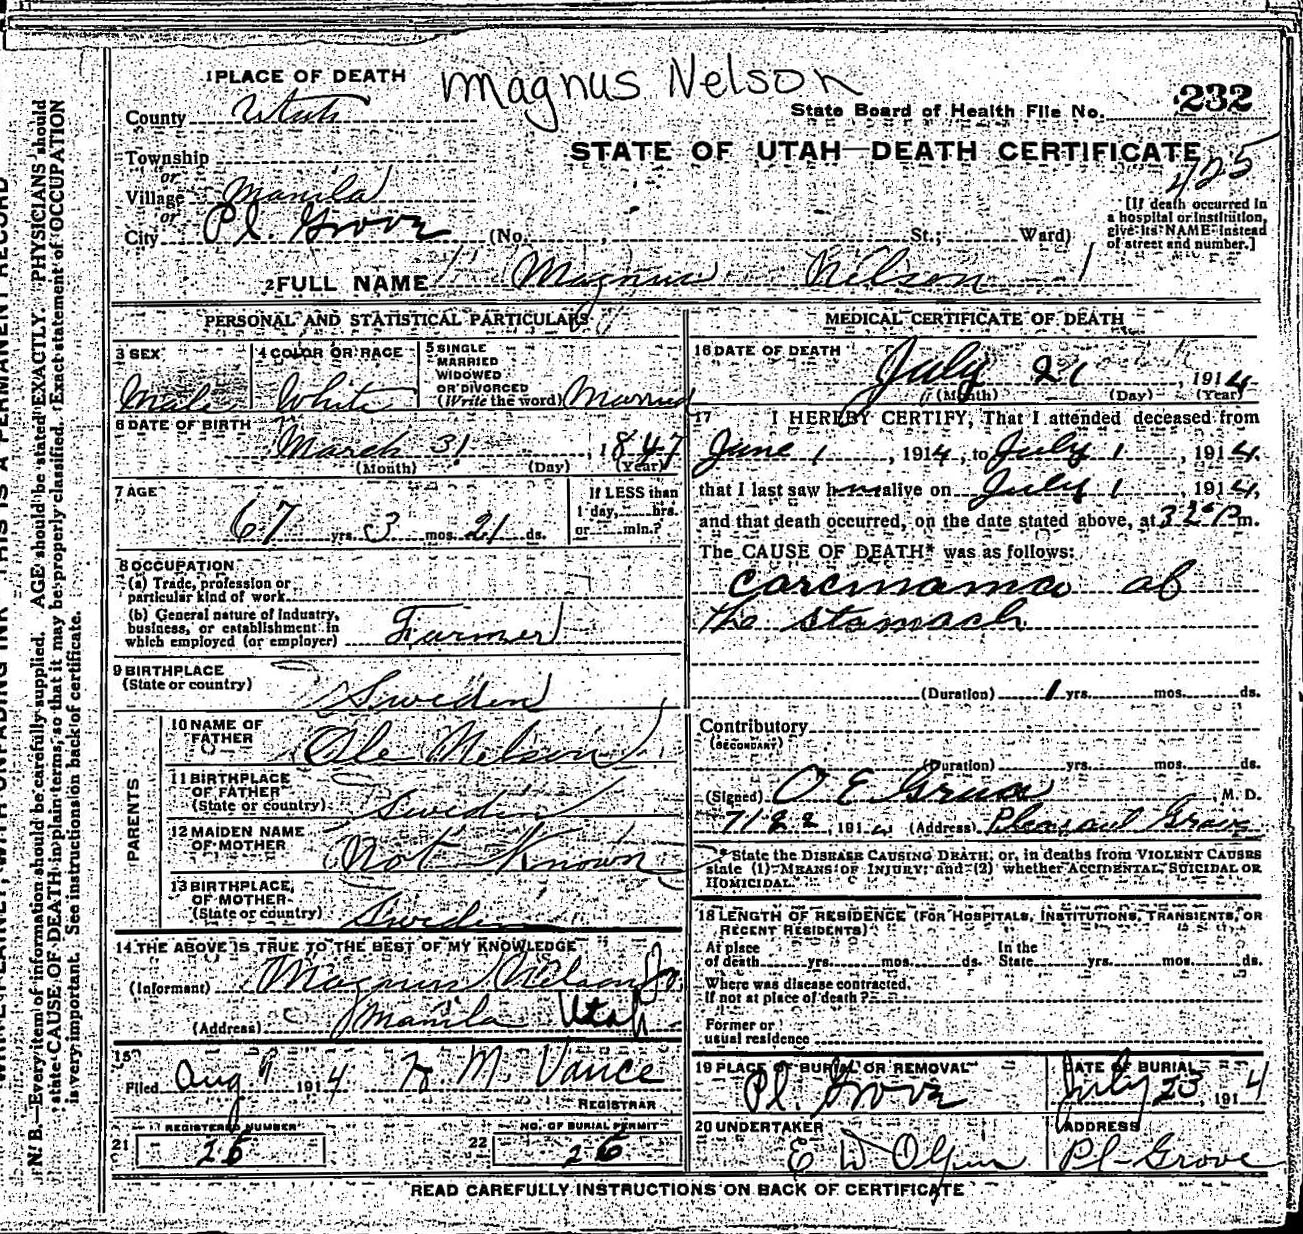 Magnus Nelson
1 PLACE OF DEATH
County Utah
State Board of Health File No. 232
STATE OF UTAH—DEATH CERTIFICATE
425
Township
or
Village Manila
or
City Pl. Grove (No. , St.; Ward)
[If death occurred in
a hospital or institution,
give its NAME instead
of street and number.]
2 FULL NAME Magnus Nelson
PERSONAL AND STATISTICAL PARTICULARS
3 SEX Male
4 COLOR OR RACE White
5 SINGLE
MARRIED
WIDOWED
OR DIVORCED
(Write the word) Married
6 DATE OF BIRTH
March 31, 1847
(Month) (Day) (Year)
7 AGE
67 yrs. 3 mos. 21 ds.
If LESS than
1 day, hrs.
or min.?
8 OCCUPATION
(a) Trade, profession or
particular kind of work
(b) General nature of industry,
business, or establishment in
which employed (or employer) Farmer
9 BIRTHPLACE
(State or country) Sweden
PARENTS
10 NAME OF
FATHER Ole Nelson
11 BIRTHPLACE
OF FATHER
(State or country) Sweden
12 MAIDEN NAME
OF MOTHER Not Known
13 BIRTHPLACE
OF MOTHER
(State or country) Sweden
14 THE ABOVE IS TRUE TO THE BEST OF MY KNOWLEDGE
(Informant) Magnus Nelson Jr.
(Address) Manila Utah
15
Filed Aug 9 1914 M. Vance
REGISTRAR
21 REGISTERED NUMBER
26
22 NO. OF BURIAL PERMIT
26
MEDICAL CERTIFICATE OF DEATH
16 DATE OF DEATH
July 21, 1914
(Month) (Day) (Year)
17 I HEREBY CERTIFY, That I attended deceased from
June 1, 1914, to July 1, 1914
that I last saw him alive on July 1, 1914,
and that death occurred, on the date stated above, at 3 20 P m.
The CAUSE OF DEATH* was as follows:
Carcinoma of
the stomach
(Duration) 1 yrs. mos. ds.
Contributory
(SECONDARY)
(Duration) yrs. mos. ds.
(Signed) O E Grua, M. D.
7/22, 191 (Address) Pleasant Grove
* State the DISEASE CAUSING DEATH; or, in deaths from VIOLENT CAUSES
state (1) MEANS OF INJURY; and (2) whether ACCIDENTAL, SUICIDAL OR
HOMICIDAL.
18 LENGTH OF RESIDENCE (FOR HOSPITALS, INSTITUTIONS, TRANSIENTS, OR
RECENT RESIDENTS)
At place
of death yrs. mos. ds.
In the
State yrs. mos. ds.
Where was disease contracted,
if not at place of death?
Former or
usual residence
19 PLACE OF BURIAL OR REMOVAL
Pl. Grove
DATE OF BURIAL
July 23, 1914
20 UNDERTAKER
E D Olpin
ADDRESS
Pl Grove
READ CAREFULLY INSTRUCTIONS ON BACK OF CERTIFICATE
N. B.—Every item of information should be carefully supplied. AGE should be stated EXACTLY. PHYSICIANS should
state CAUSE OF DEATH in plain terms, so that it may be properly classified. Exact statement of OCCUPATION
is very important. See instructions on back of certificate.
WRITE PLAINLY, WITH UNFADING INK—THIS IS A PERMANENT RECORD